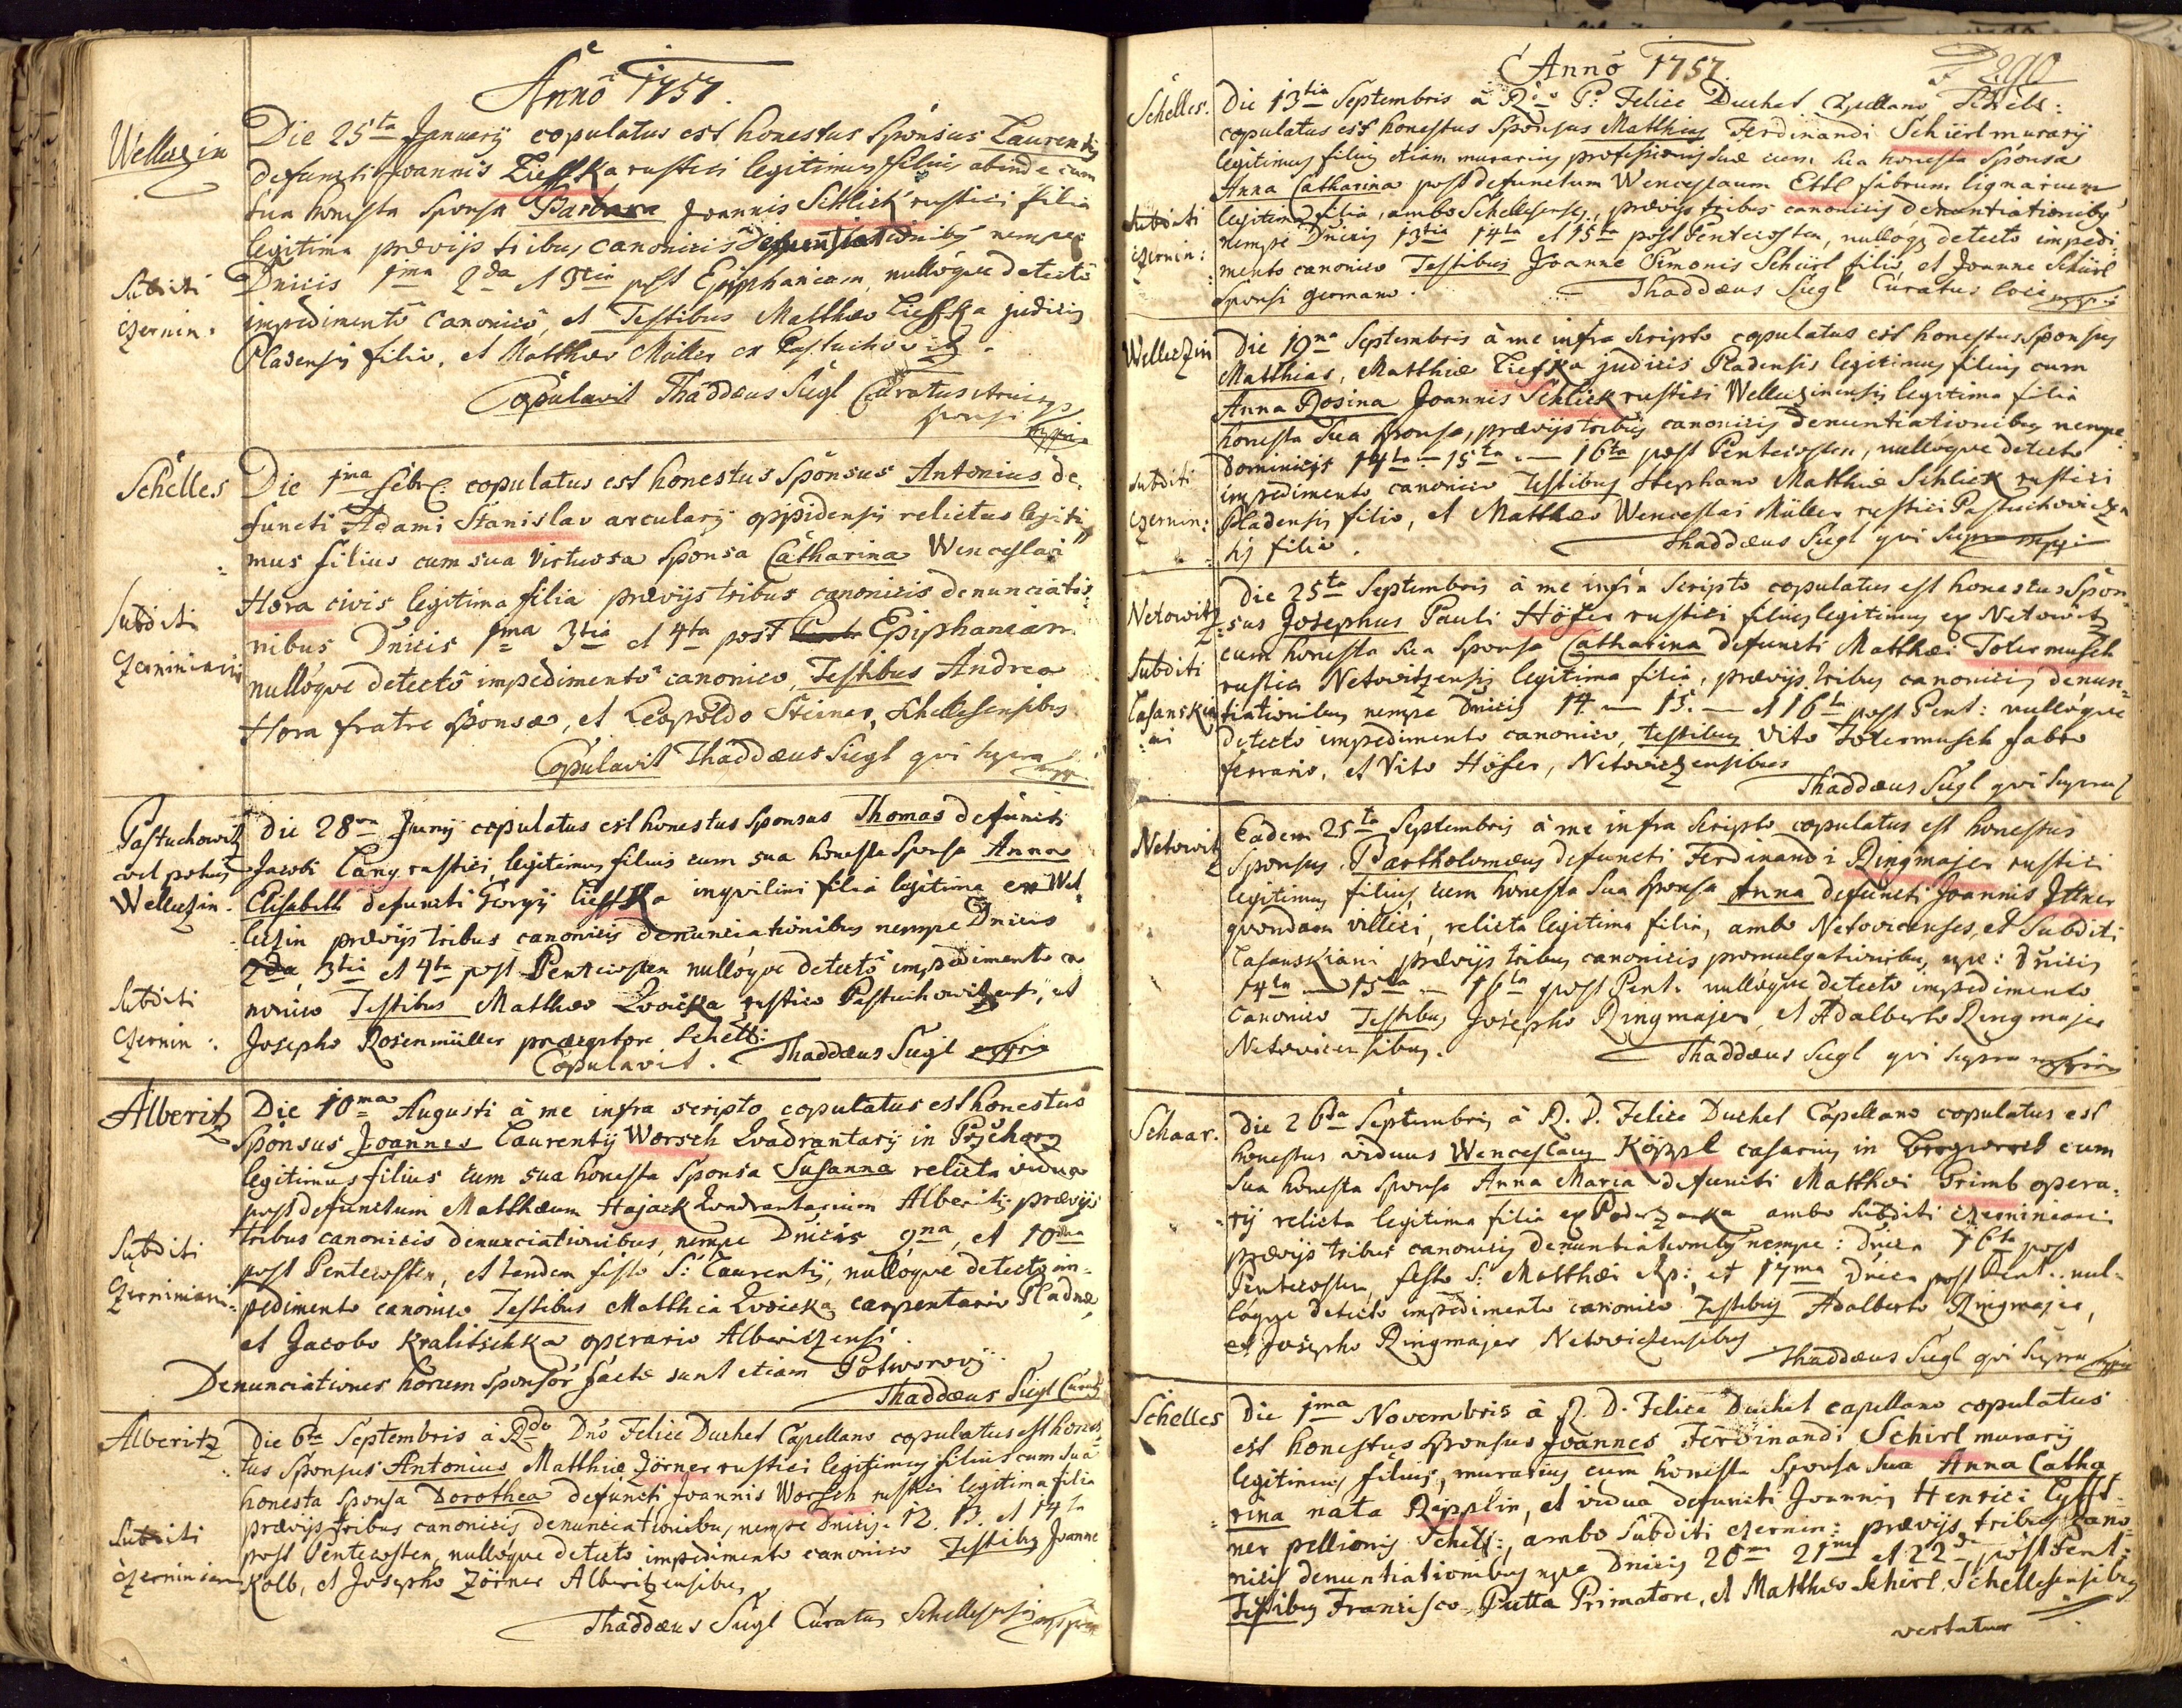 Anno 1757.
Wellezin
Die 25ta Januarij copulatus est honestus Sponsus Laurentius
defuncti Joannis Liefka rustici legitimus filius abinde cum
sua honesta Sponsa Barbara Joannis Schlick rustici filia
legitima prævijs tribus canonicis nempe
Subditi
Czernin:
Dnicis 1ma 2da et 3tia post Epiphaniam, nulloque detecto
impedimento canonico, et Testibus Matthæo Liefka judicis
Pladensis filio, et Matthæo Müller ex Pastuchowitz.
Copulavit Thaddæus Siegl Curatus
sponsi
Schelles
Die 1ma Febr: copulatus est honestus Sponsus Antonius de-
functi Adami Stanislav arcularij oppidensis relictus legiti-
mus filius cum sua virtuosa Sponsa Catharina Wenceslai
Hora civis legitima filia prævijs tribus canonicis denunciatio-
Subditi
Czerniniani
nibus Dnicis 1ma 3tia et 4ta post Epiphaniam
nulloque detecto impedimento canonico, Testibus Andrea
Hora fratre sponsæ, et Leopoldo Steiner, Schellesensibus
Copulavit Thaddæus Siegl qui supra mpp
Pastuchowitz
vel potius
Wellezin.
Die 28va Junij copulatus est honestus Sponsus Thomas defuncti
Jacobi Lang rustici, legitimus filius cum sua honesta Sponsa Anna
Elisabeth defuncti Georgij Liefka inquilini filia legitima ex Wel-
lezin prævijs tribus canonicis denunciationibus nempe Dnicis
2da, 3tia et 4ta post Pentecosten nulloque detecto impedimento ca
Subditi
Czernin:
nonico Testibus Matthæo Zwicka rustico Pastuchowitzensi, et
Josepho Rosenmüller præceptore Schell:
Copulavit. Thaddæus Siegl mppria
Alberitz
Die 10ma Augusti à me infra scripto copulatus est honestus
Sponsus Joannes Laurentij Worsch Quadrantarij in
legitimus filius cum sua honesta Sponsa Susanna relicta vidua
post defunctum Matthæum Hajack Quadrantarium Alberitz prævijs
tribus canonicis denunciationibus nempe Dnicis 9na, et 10ma
Subditi
Czerninian:
post Pentecosten, et tandem festo S: Laurentij, nulloque detecto im-
pedimento canonico Testibus Matthia Zwicka carpentario Pladnæ
et Jacobo Kralitschka operario Alberitzensi.
Denunciationes horum Sponsor factæ sunt etiam Potworovij.
Thaddæus Siegl Curat
Alberitz
Die 6ta Septembris à Rdo Dno Felice Duchet Capellano copulatus est hones
tus Sponsus Antonius Matthiæ Zörner rustici legitimus filius cum sua
honesta Sponsa Dorothea defuncti Joannis Worsch rustici legitima filia
prævijs tribus canonicis denunciationibus, nempe Dnicis. 12. 13. et 14ta
Subditi
Czerninian
post Pentecosten, nulloque detecto impedimento canonico Testibus Joanne
Kolb, et Josepho Zörner Alberitzensibus,
Thaddæus Siegl Curatus Schellesensis mppria
Anno 1757
290
Schelles.
Die 13tia Septembris à R: P: Felice Duchet Capellano Schels:
copulatus est honestus Sponsus Matthias Ferdinandi Schürl murarij
legitimus filius etiam murarius professionis suæ cum sua honesta Sponsa
Anna Catharina post defunctum Wenceslaum Ettl fabrum lignarium
Subditi
Czernin:
legitima filia, ambo Schellesenses, prævijs tribus canonicis denuntiationibus
nempe Dnicis 13tia 14ta et 15ta post Pentecosten, nulloque detecto impedi-
mento canonico Testibus Joanne Simonis Schürl filio, et Joanne Schürl
Sponsi germano. Thaddæus Siegl Curatus loci mppria
Wellezin
Die 19na Septembris à me infra scripto copulatus est honestus Sponsus
Matthias, Matthiæ Liefka judicis Pladensis legitimus filius cum
Anna Rosina Joannis Schlick rustici Wellezinensis legitima filia
honesta sua sponsa, prævijs tribus canonicis denuntiationibus nempe
Subditi
Czernin:
Dominicis 14ta - 15ta - 16ta post Pentecosten, nulloque detecto
impedimento canonico Testibus Stephano Matthiæ Schlick rustici
Pladensis filio, et Matthæo Wenceslai Müller rustici Pastuchovicen
sis filio. Thaddæus Siegl qui supra mppria
Netowitz
Die 25ta Septembris à me infra scripto copulatus est honestus Spon-
sus Josephus Pauli Höfer rustici filius legitimus ex Netowitz
cum honesta sua Sponsa Catharina defuncti Matthæi Totermusch
Subditi
Lasanskia
ni
rustici Netovitzensis legitima filia, prævijs tribus canonicis denun-
tiationibus nempe Dnicis 14 - 15. - et 16ta post Pent: nulloque
detecto impedimento canonico, testibus Vito Totermusch fabro
ferrario, et Vito Höfer, Netoviczensibus
Thaddæus Siegl qui supra
Netowitz
Eadem 25ta Septembris à me infra scripto copulatus est honestus
Sponsus Bartholomæus defuncti Ferdinandi Ringmajer rustici
legitimus filius, cum honesta sua sponsa Anna defuncti Joannis Ittner
quondam villici, relicta legitima filia, ambo Netovicenses, et Subditi
Lasanskiani prævijs tribus canonicis promulgationibus, npe: Dnicis
14ta - 15ta - 16ta post Pent. nulloque detecto impedimento
canonico Testibus Josepho Ringmajer, et Adalberto Ringmajer
Netovicensibus.
Thaddæus Siegl qui supra mppria
Schaar.
Die 26ta Septembris à R. D. Felice Duchet Capellano copulatus est
honestus viduus Wenceslaus Köppl casarius in cum
sua honesta Sponsa Anna Maria defuncti Matthæi Grimb opera-
rij relicta legitima filia ex Poderzanka ambo Subditi Czerniniani
prævijs tribus canonicis denuntiationibus nempe: Dnica 16ta post
Pentecosten, festo S: Matthæi Ap:, et 17ma Dnica post Pent.. nul-
loque detecto impedimento canonico Testibus Adalberto Ringmajer,
et Josepho Ringmajer Netoviczensibus
Thaddæus Siegl qui supra mppria
Schelles
Die 1ma Novembris à R. D. Felice Duchet capellano copulatus
est honestus Sponsus Joannes Ferdinandi Schirl murarij
legitimus filius, murarius cum honesta Sponsa sua Anna Catha
rina nata Ripplin, et vidua defuncti Joannis Henrici Lyfft-
ner pellionis Schels:, ambo Subditi Czernin: prævijs tribus cano-
nicis denuntiationibus npe Dnicis 20ma 21ma et 22da post Pent:
Testibus Francisco Putta Primatore, et Matthæo Schirl, Schellesensibus
vertatur